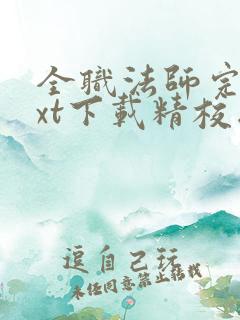 全職法師完
xt下載精校
逗自己玩
未经同意禁止转载